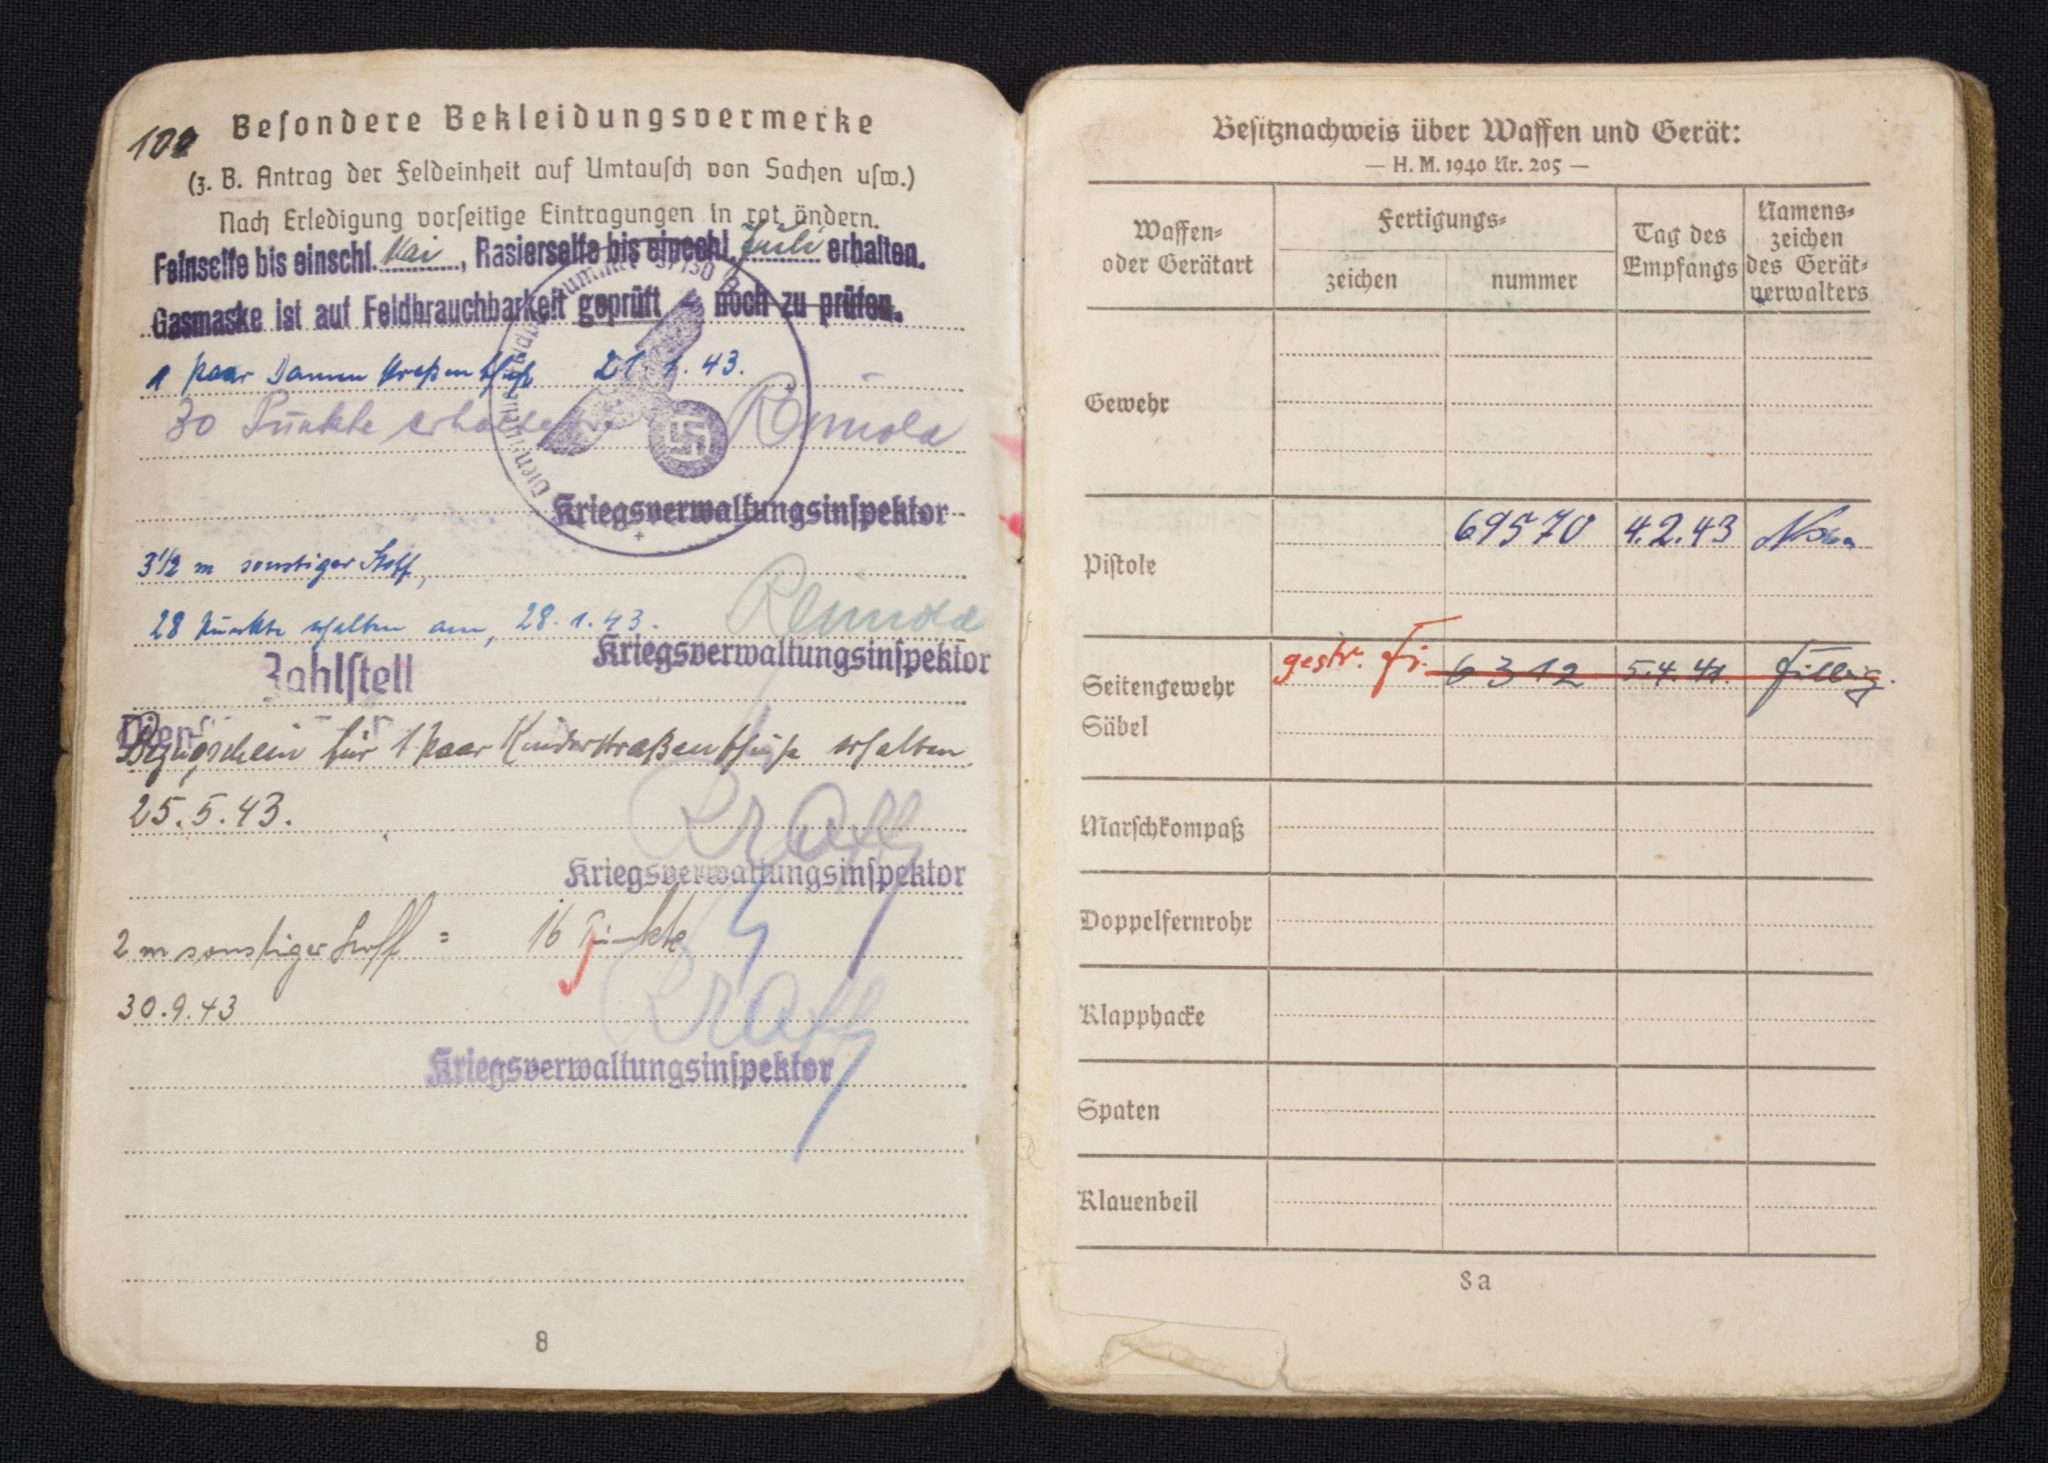 Besondere Bekleidungsvermerke
(z. B. Antrag der Feldeinheit auf Umtausch von Sachen usw.)
Nach Erledigung vorseitige Eintragungen in rot ändern.
Feinseife bis einschl. Mai, Rasierseife bis einschl. Juli erhalten.
Gasmaske ist auf Feldbrauchbarkeit geprüft noch zu prüfen.
1 Paar Damen Straßenschuhe 21.1.43.
30 Punkte erhalten
Kriegsverwaltungsinspektor
3 1/2 m sonstiger Stoff,
28 Punkte erhalten am, 28.1.43.
Kriegsverwaltungsinspektor
Zahlstell
Dien
Bezugschein für 1 Paar Kinderstraßenschuhe erhalten
25.5.43.
Kriegsverwaltungsinspektor
2 m sonstiger Stoff = 16 Punkte
30.9.43
Kriegsverwaltungsinspektor
8
Besitznachweis über Waffen und Gerät:
— H. M. 1940 Nr. 205 —
Waffen- oder Gerätart
Fertigungs-
zeichen nummer
Tag des Empfangs
Namens- zeichen des Gerät- verwalters
Gewehr
Pistole 69570 4.2.43
Seitengewehr gestr. Fi. 6312 5.4.41.
Säbel
Marschkompaß
Doppelfernrohr
Klapphacke
Spaten
Klauenbeil
8a